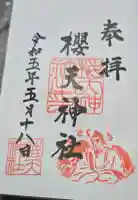 奉拝
櫻天神社
令和五年五月十八日